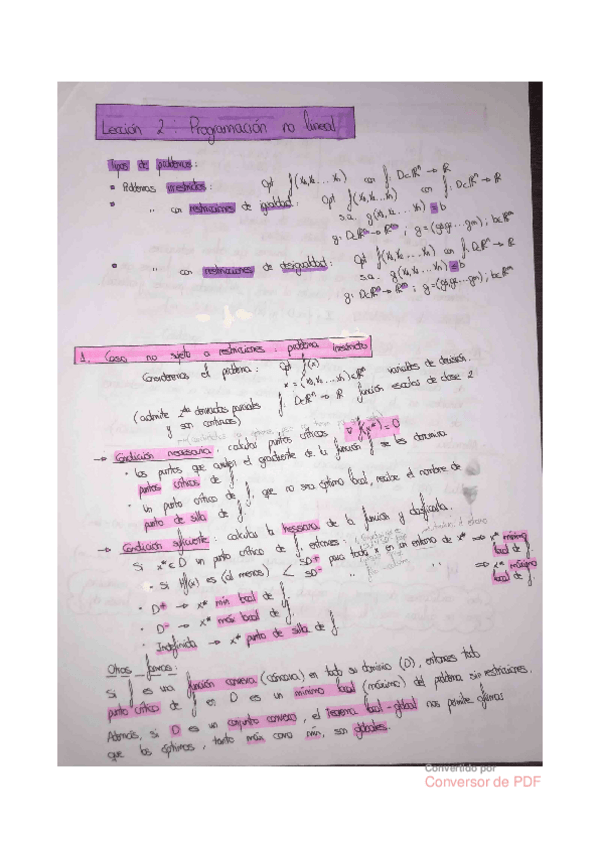 Lección 2 : Programación no lineal
Tipos de problemas :
• Problemas irrestrictos : Opt f(x₁,x₂,...xₙ) con f: D⊂ℝⁿ→ℝ
• " con restricciones de igualdad : Opt f(x₁,x₂...xₙ) con f: D⊂ℝⁿ→ℝ
s.a. g(x₁,x₂,...xₙ) = b
g: D⊂ℝⁿ→ℝᵐ ; g=(g₁,g₂,...gₘ) ; b∈ℝᵐ
• " con restricciones de desigualdad : Opt f(x₁,x₂,...xₙ) con f: D⊂ℝⁿ→ℝ
s.a. g(x₁,x₂,...xₙ) ≤ b
g: D⊂ℝⁿ→ℝᵐ ; g=(g₁,g₂,...gₘ) ; b∈ℝᵐ
1. Caso no sujeto a restricciones : problema irrestricto
Consideremos el problema : Opt f(x)
x = (x₁,x₂,...xₙ)∈ℝⁿ variables de decisión.
f: D⊂ℝⁿ→ℝ función escalar de clase 2
(admite 2ª derivadas parciales
y son continuas)
→ Condición necesaria : calcular puntos críticos ∇f(x*) = 0
• Los puntos que anulan el gradiente de la función f se les denomina
puntos críticos de f.
• Un punto crítico de f, que no sea óptimo local, recibe el nombre de
punto de silla de f.
→ Condición suficiente : calcular la hessiana de la función y clasificarla.
Si x*∈D un punto crítico de f, entonces :
• Si Hf(x) es (al menos) < SD+ para todo x en un entorno de x* ⇒ x* mínimo local de f.
SD- " " ⇒ x* máximo local de f.
• D+ → x* mín local de f.
• D- → x* máx local de f.
• Indefinida → x* punto de silla de f
Otras formas :
Si f es una función convexa (cóncava) en todo su dominio (D), entonces todo
punto crítico de f en D es un mínimo local (máximo) del problema sin restricciones.
Además, si D es un conjunto convexo, el teorema local-global nos permite afirmar
que los óptimos, tanto máx como mín, son globales.
Convertido por
Conversor de PDF